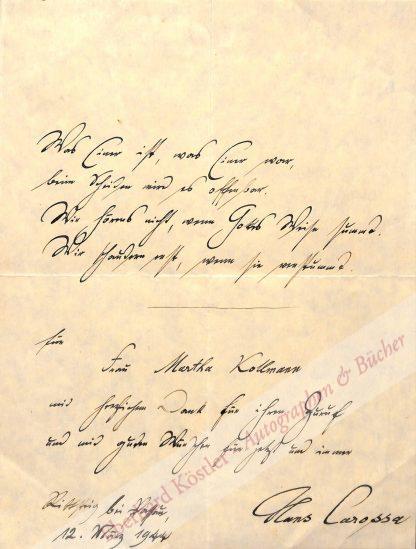 Was Einer ist, was Einer war,
beim Scheiden wird es offenbar.
Wir hörens nicht, wenn Gottes Weise summt.
Wir schaudern erst, wenn sie verstummt.
Für
Frau Martha Kollmann
mit herzlichem Dank für ihren Zuruf
und mit guten Wünschen für jetzt und immer
Rittsteig bei Passau,
12. März 1944
Hans Carossa
Eberhard Köstler Autographen & Bücher